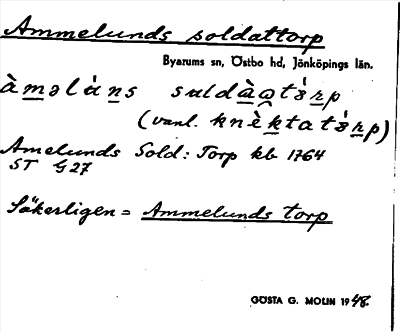 Ammelunds soldattorp
Byarums sn, Östbo hd, Jönköpings län.
àməláns suldàatɜ́rp
(vanl. knèktatɜ́rp)
Amelunds Sold: Torp kb 1764
ST G27
Säkerligen = Ammelunds torp
GÖSTA G. MOLIN 1948.